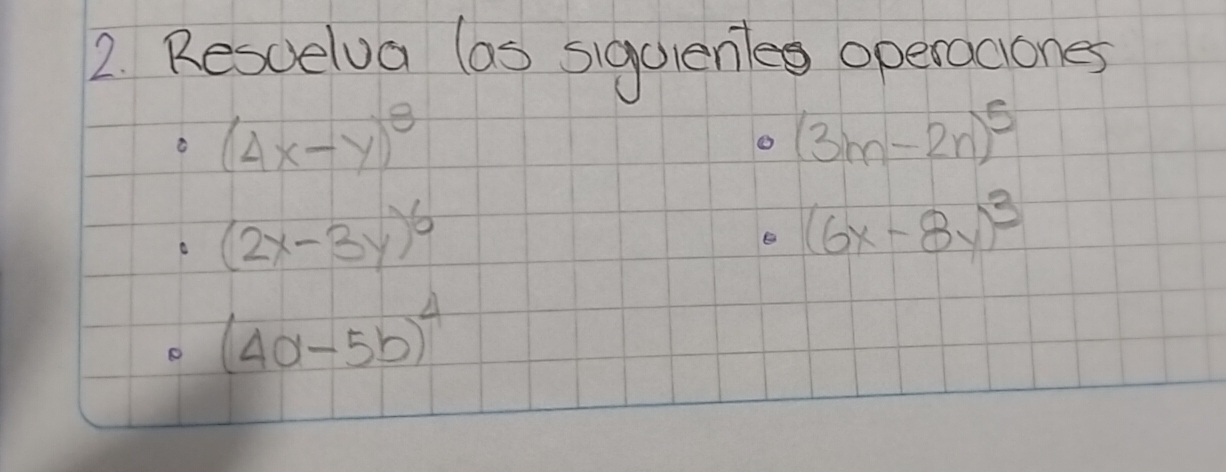 2. Resuelva las siguientes operaciones
• (4x-y)⁸ • (3m-2n)⁵
• (2x-3y)⁶ • (6x-8y)³
• (4a-5b)⁴